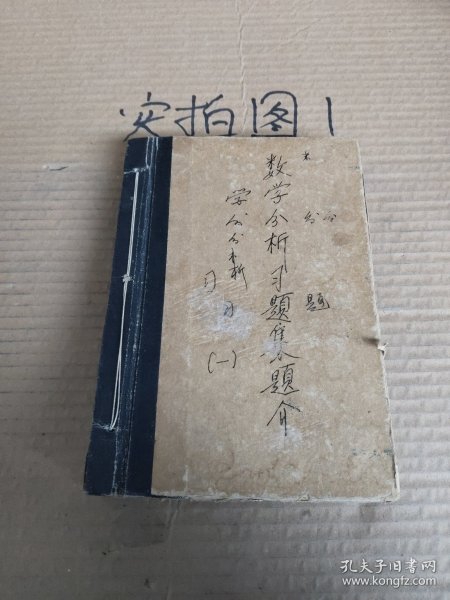 实拍图1
数学分析习题集题介
学分分析
习习
(一)
木
分分
题
孔夫子旧书网
www.kongfz.com